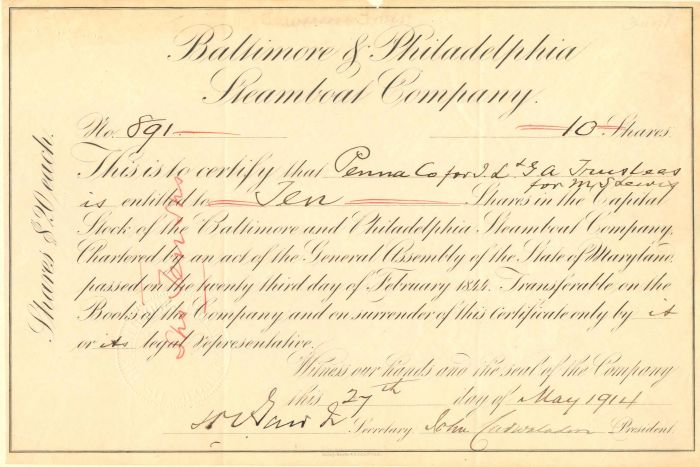 Baltimore & Philadelphia
Steamboat Company.
No. 891 10 Shares
This is to certify that Penna Co for I. L & G A Trustees
for M S Lewis
is entitled to Ten Shares in the Capital
Stock of the Baltimore and Philadelphia Steamboat Company,
Chartered by an act of the General Assembly of the State of Maryland
passed on the twenty third day of February 1844. Transferable on the
Books of the Company and on surrender of this Certificate only by it
or its legal representative.
Witness our hands and the seal of the Company
this 27th day of May 1914
Secretary John Cadwalader President.
Shares $ each.